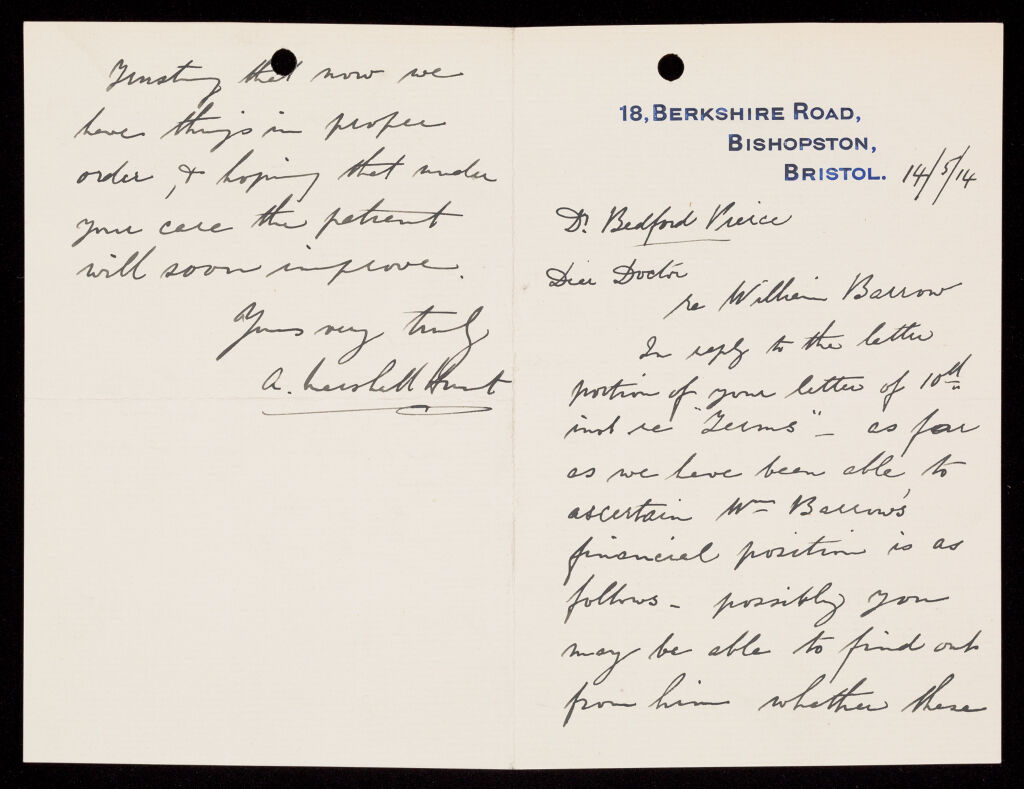 18, BERKSHIRE ROAD,
BISHOPSTON,
BRISTOL. 14/5/14
Dr. Bedford Pierce
Dear Doctor
re William Barrow
In reply to the latter
portion of your letter of 10th
inst re "Terms" - as far
as we have been able to
ascertain Wm Barrow's
financial position is as
follows - possibly you
may be able to find out
from him whether these
Trusting that now we
have things in proper
order, & hoping that under
your care the patient
will soon improve.
Yours very truly
A. Marshall Hunt